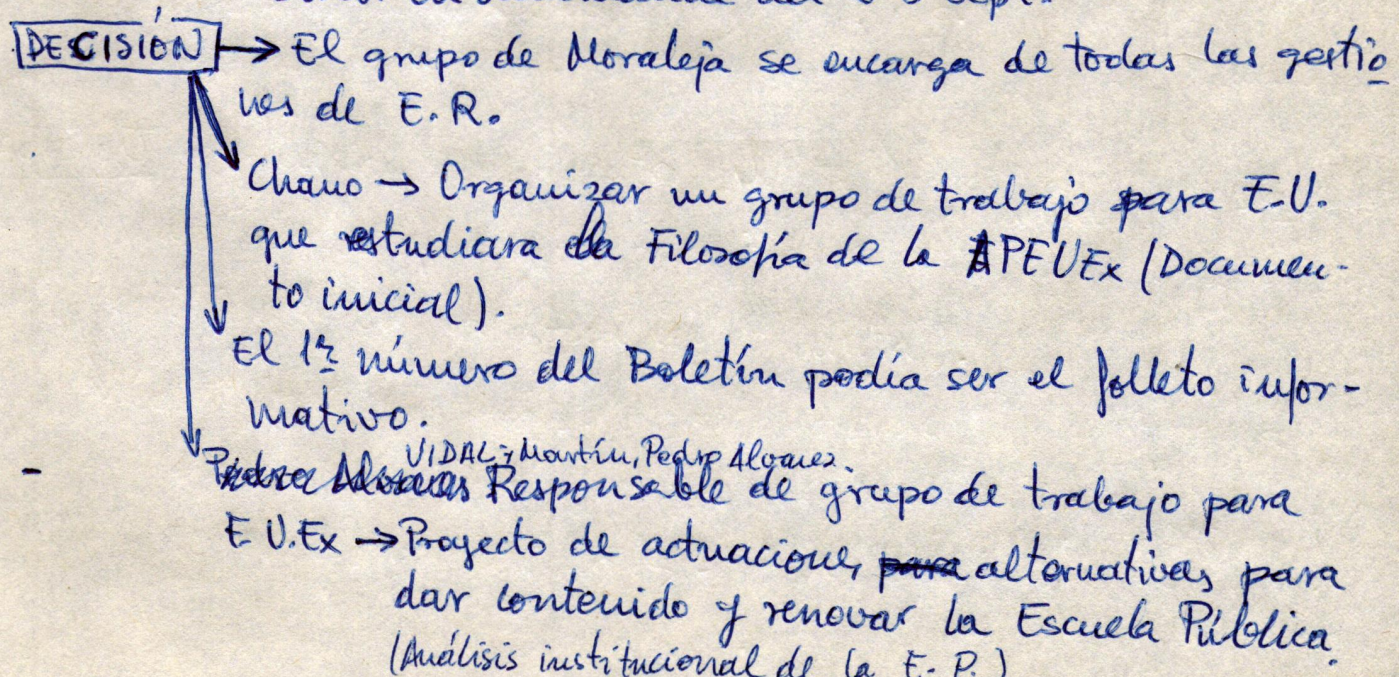 DECISIÓN → El grupo de Moraleja se encarga de todas las gestio
nes de E.R.
Chano → Organizar un grupo de trabajo para E.U.
que estudiara la Filosofía de la APEUEx (Documen-
to inicial).
El 1er número del Boletín podía ser el folleto infor-
mativo.
VIDAL; Martín, Pedro Alvarez.
- Pedro Alvarez Responsable de grupo de trabajo para
E.U.Ex → Proyecto de actuaciones, para alternativas para
dar contenido y renovar la Escuela Pública.
(Análisis institucional de la E.P.)